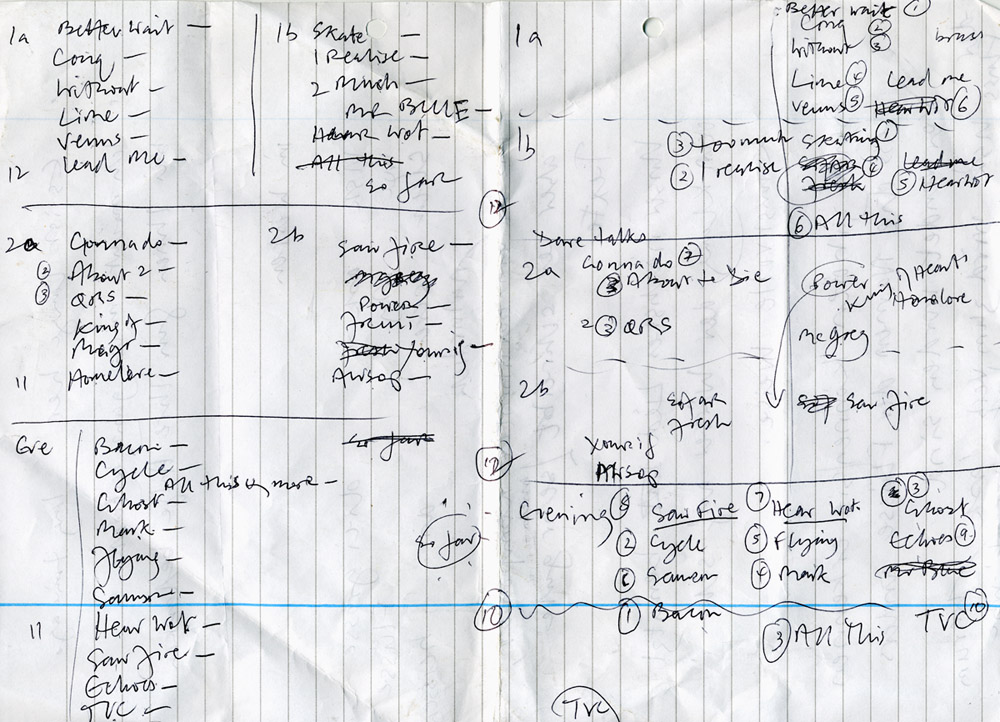 1a Better Wait —
Conq —
Without —
Lime —
Venus —
12 Lead me —
1b Skate —
1 Realise —
2 Much —
MR BLUE —
Hear Wot —
All this
So far
2a Gonnado —
② About 2 —
③ QRS —
King of —
Magr —
11 Homelove —
2b Saw fire —
Power —
Yourig —
Airsog —
Eve Bacon —
Cycle —
All this & more —
Ghost —
Mark —
Flying —
Samson —
11 Hear Wot —
Saw fire —
Echoes —
TVC —
So far
So far
1a Better wait ①
Conq ②
Without ③
brass
Lime ④ Lead me
Venus ⑤ Hear Wot ⑥
1b ③ too much Skating ①
② I realise ④ Lead me
⑤ Hear Wot
⑫
⑥ All this
Dave talks
2a Gonna do ⑦
② About to Die
2 ③ QRS
Power
King of Hearts
Homelove
McGreg
2b So far
Fresh
Saw fire
Yourig
Airsog
⑫
Evening ⑧ Saw Fire ⑦ Hear Wot ③ Ghost
② Cycle ⑤ Flying Echoes ⑨
⑥ Samson ④ Mark Mr Blue
⑩ ① Bacon ③ All This TVC ⑩
TVC